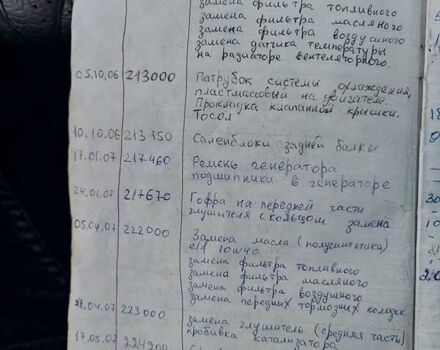 замена фильтра топливного
замена фильтра масляного
замена фильтра воздушного
замена датчика температуры
на радиаторе вентеляторного.
05.10.06 213000 Патрубок системы охлаждения,
пластмасовый на двигателе.
Прокладка клапанной крышки.
Тосол
10.10.06 213 750 Саленблоки задней балки
17.01.07 217460 Ремень генератора
подшипники в генераторе
24.01.07 217670 Гофра на передней части
глушителя с кольцом замена
05.04.07 222000 Замена масла (полусинтетика)
elf 10w40
замена фильтра топливного
замена фильтра масляного
замена фильтра воздушного
замена передних тормозных колодок
27.04.07 223000 замена глушитель (средняя часть)
пробивка катализатора
17.05.07 224200